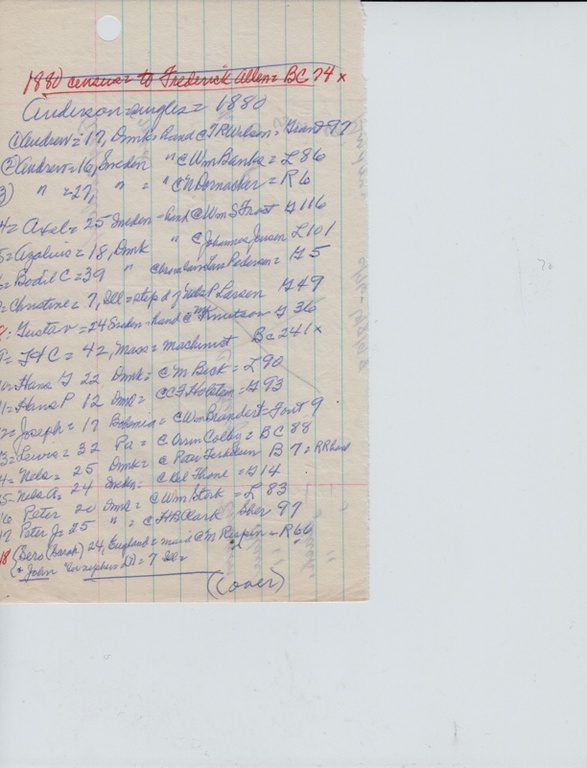 1880 census = to Frederick Allen = BC 74 x
Anderson = singles = 1880
① Andrew = 17, Dmk = hand c T R Wilson = Grant 97
② Andrew = 16, Sweden " c Wm Banks = L 86
3) " = 27, " = " c N Domacker = R 6
4 = Axel = 25 Sweden = hand c Wm S Frost G 116
5 = = 18, Dmk " c Johannes Jensen L 101
6 = Bodil C = 39 " Pedersen = G 5
= Christine = 7, Ill = step d of Nels P Larsen G 49
8: Gustav = 24 Sweden = hand c Knutson G 36
9 = J H C = 42, Mass = machinist BC 241 x
10 = Hans J 22 Dmk = c M Beck = L 90
11 = Hans P 12 Dmk = c C F Holstein = G 93
12 = Joseph = 17 Bohemia = c Wm Brandert = Grant 9
13 = Lewis = 32 Pa = c Orrin Colby = BC 88
14 = Nels = 25 Dmk = c Peter B 7 = RR hand
15 - Nels A = 24 Sweden = c Kel Thone = G 14
16 Peter 20 Dmk = c Wm Stork = L 83
17 Peter J = 25 " = c H B Clark Sher 97
18 (Sere (Sarah) 24, England = maid c M = R 66
(+ John = 7 Ill
(over)